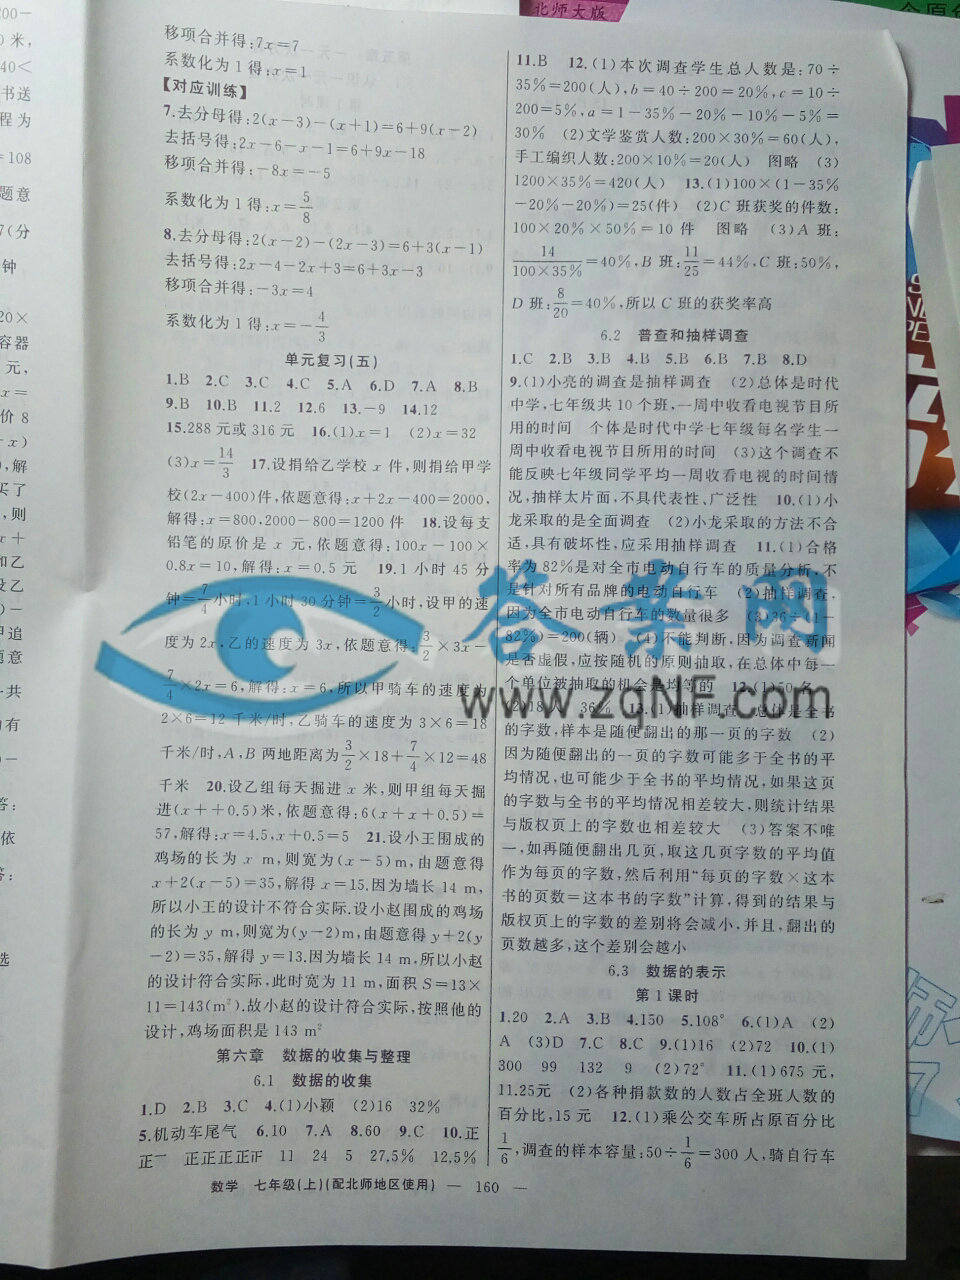 移项合并得:7x=7
系数化为1得:x=1
【对应训练】
7.去分母得:2(x-3)-(x+1)=6+9(x-2)
去括号得:2x-6-x-1=6+9x-18
移项合并得:-8x=-5
系数化为1得:x=5/8
8.去分母得:2(x-2)-(2x-3)=6+3(x-1)
去括号得:2x-4-2x+3=6+3x-3
移项合并得:-3x=4
系数化为1得:x=-4/3
单元复习(五)
1.B 2.C 3.C 4.C 5.A 6.D 7.A 8.B
9.B 10.B 11.2 12.6 13.-9 14.12
15.288元或316元 16.(1)x=1 (2)x=32
(3)x=14/3 17.设捐给乙学校x件,则捐给甲学
校(2x-400)件,依题意得:x+2x-400=2000,
解得:x=800,2000-800=1200件 18.设每支
铅笔的原价是x元,依题意得:100x-100×
0.8x=10,解得:x=0.5元 19.1小时45分
钟=7/4小时,1小时30分钟=3/2小时,设甲的速
度为2x,乙的速度为3x,依题意得:3/2×3x-
7/4×2x=6,解得:x=6,所以甲骑车的速度为
2×6=12千米/时,乙骑车的速度为3×6=18
千米/时,A,B两地距离为3/2×18+7/4×12=48
千米 20.设乙组每天掘进x米,则甲组每天掘
进(x++0.5)米,依题意得:6(x+x+0.5)=
57,解得:x=4.5,x+0.5=5 21.设小王围成的
鸡场的长为x m,则宽为(x-5)m,由题意得
x+2(x-5)=35,解得x=15.因为墙长14 m,
所以小王的设计不符合实际.设小赵围成的鸡场
的长为y m,则宽为(y-2)m,由题意得y+2(y
-2)=35,解得y=13.因为墙长14 m,所以小赵
的设计符合实际,此时宽为11 m,面积S=13×
11=143(m²).故小赵的设计符合实际,按照他的
设计,鸡场面积是143 m²
第六章 数据的收集与整理
6.1 数据的收集
1.D 2.B 3.C 4.(1)小颖 (2)16 32%
5.机动车尾气 6.10 7.A 8.60 9.C 10.正
正 正正正正 11 24 5 27.5% 12.5%
11.B 12.(1)本次调查学生总人数是:70÷
35%=200(人),b=40÷200=20%,c=10÷
200=5%,a=1-35%-20%-10%-5%=
30% (2)文学鉴赏人数:200×30%=60(人),
手工编织人数:200×10%=20(人) 图略 (3)
1200×35%=420(人) 13.(1)100×(1-35%
-20%-20%)=25(件) (2)C班获奖的件数:
100×20%×50%=10件 图略 (3)A班:
14/(100×35%)=40%,B班:11/25=44%,C班:50%,
D班:8/20=40%,所以C班的获奖率高
6.2 普查和抽样调查
1.C 2.B 3.B 4.B 5.B 6.B 7.B 8.D
9.(1)小亮的调查是抽样调查 (2)总体是时代
中学,七年级共10个班,一周中收看电视节目所
用的时间 个体是时代中学七年级每名学生一
周中收看电视节目所用的时间 (3)这个调查不
能反映七年级同学平均一周收看电视的时间情
况,抽样太片面,不具代表性、广泛性 10.(1)小
龙采取的是全面调查 (2)小龙采取的方法不合
适,具有破坏性,应采用抽样调查 11.(1)合格
率为82%是对全市电动自行车的质量分析,不
是针对所有品牌的电动自行车 (2)抽样调查,
因为全市电动自行车的数量很多 (3)36÷(1-
82%)=200(辆) (4)不能判断,因为调查新闻
是否虚假,应按随机的原则抽取,在总体中每一
个单位被抽取的机会是均等的 12.(1)50名
(2)18 36% 13.(1)抽样调查 总体是全书
的字数,样本是随便翻出的那一页的字数 (2)
因为随便翻出的一页的字数可能多于全书的平
均情况,也可能少于全书的平均情况,如果这页
的字数与全书的平均情况相差较大,则统计结果
与版权页上的字数也相差较大 (3)答案不唯
一,如再随便翻出几页,取这几页字数的平均值
作为每页的字数,然后利用“每页的字数×这本
书的页数=这本书的字数”计算,得到的结果与
版权页上的字数的差别将会减小,并且,翻出的
页数越多,这个差别会越小
6.3 数据的表示
第1课时
1.20 2.A 3.B 4.150 5.108° 6.(1)A (2)
A (3)D 7.C 8.C 9.(1)16 (2)72 10.(1)
300 99 132 9 (2)72° 11.(1)675元,
11.25元 (2)各种捐款数的人数占全班人数的
百分比,15元 12.(1)乘公交车所占原百分比
1/6,调查的样本容量:50÷1/6=300人,骑自行车
数学 七年级(上)(配北师地区使用) — 160 —
答案网
www.zqNF.com
北师大版